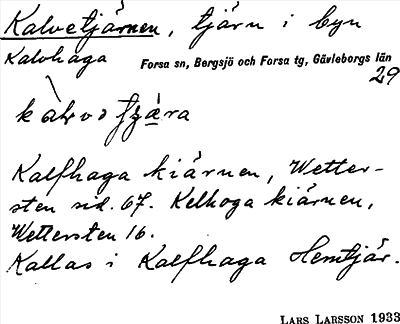 Kalvetjärnen, tjärn i byn
Kalvhaga Forsa sn, Bergsjö och Forsa tg, Gävleborgs län
29
Kalfhaga kiärnen, Wetter-
sten sid. 67. Kelhoga kiärnen,
Wettersten 16.
Kallas i Kalfhaga Hemtjär.
LARS LARSSON 1933